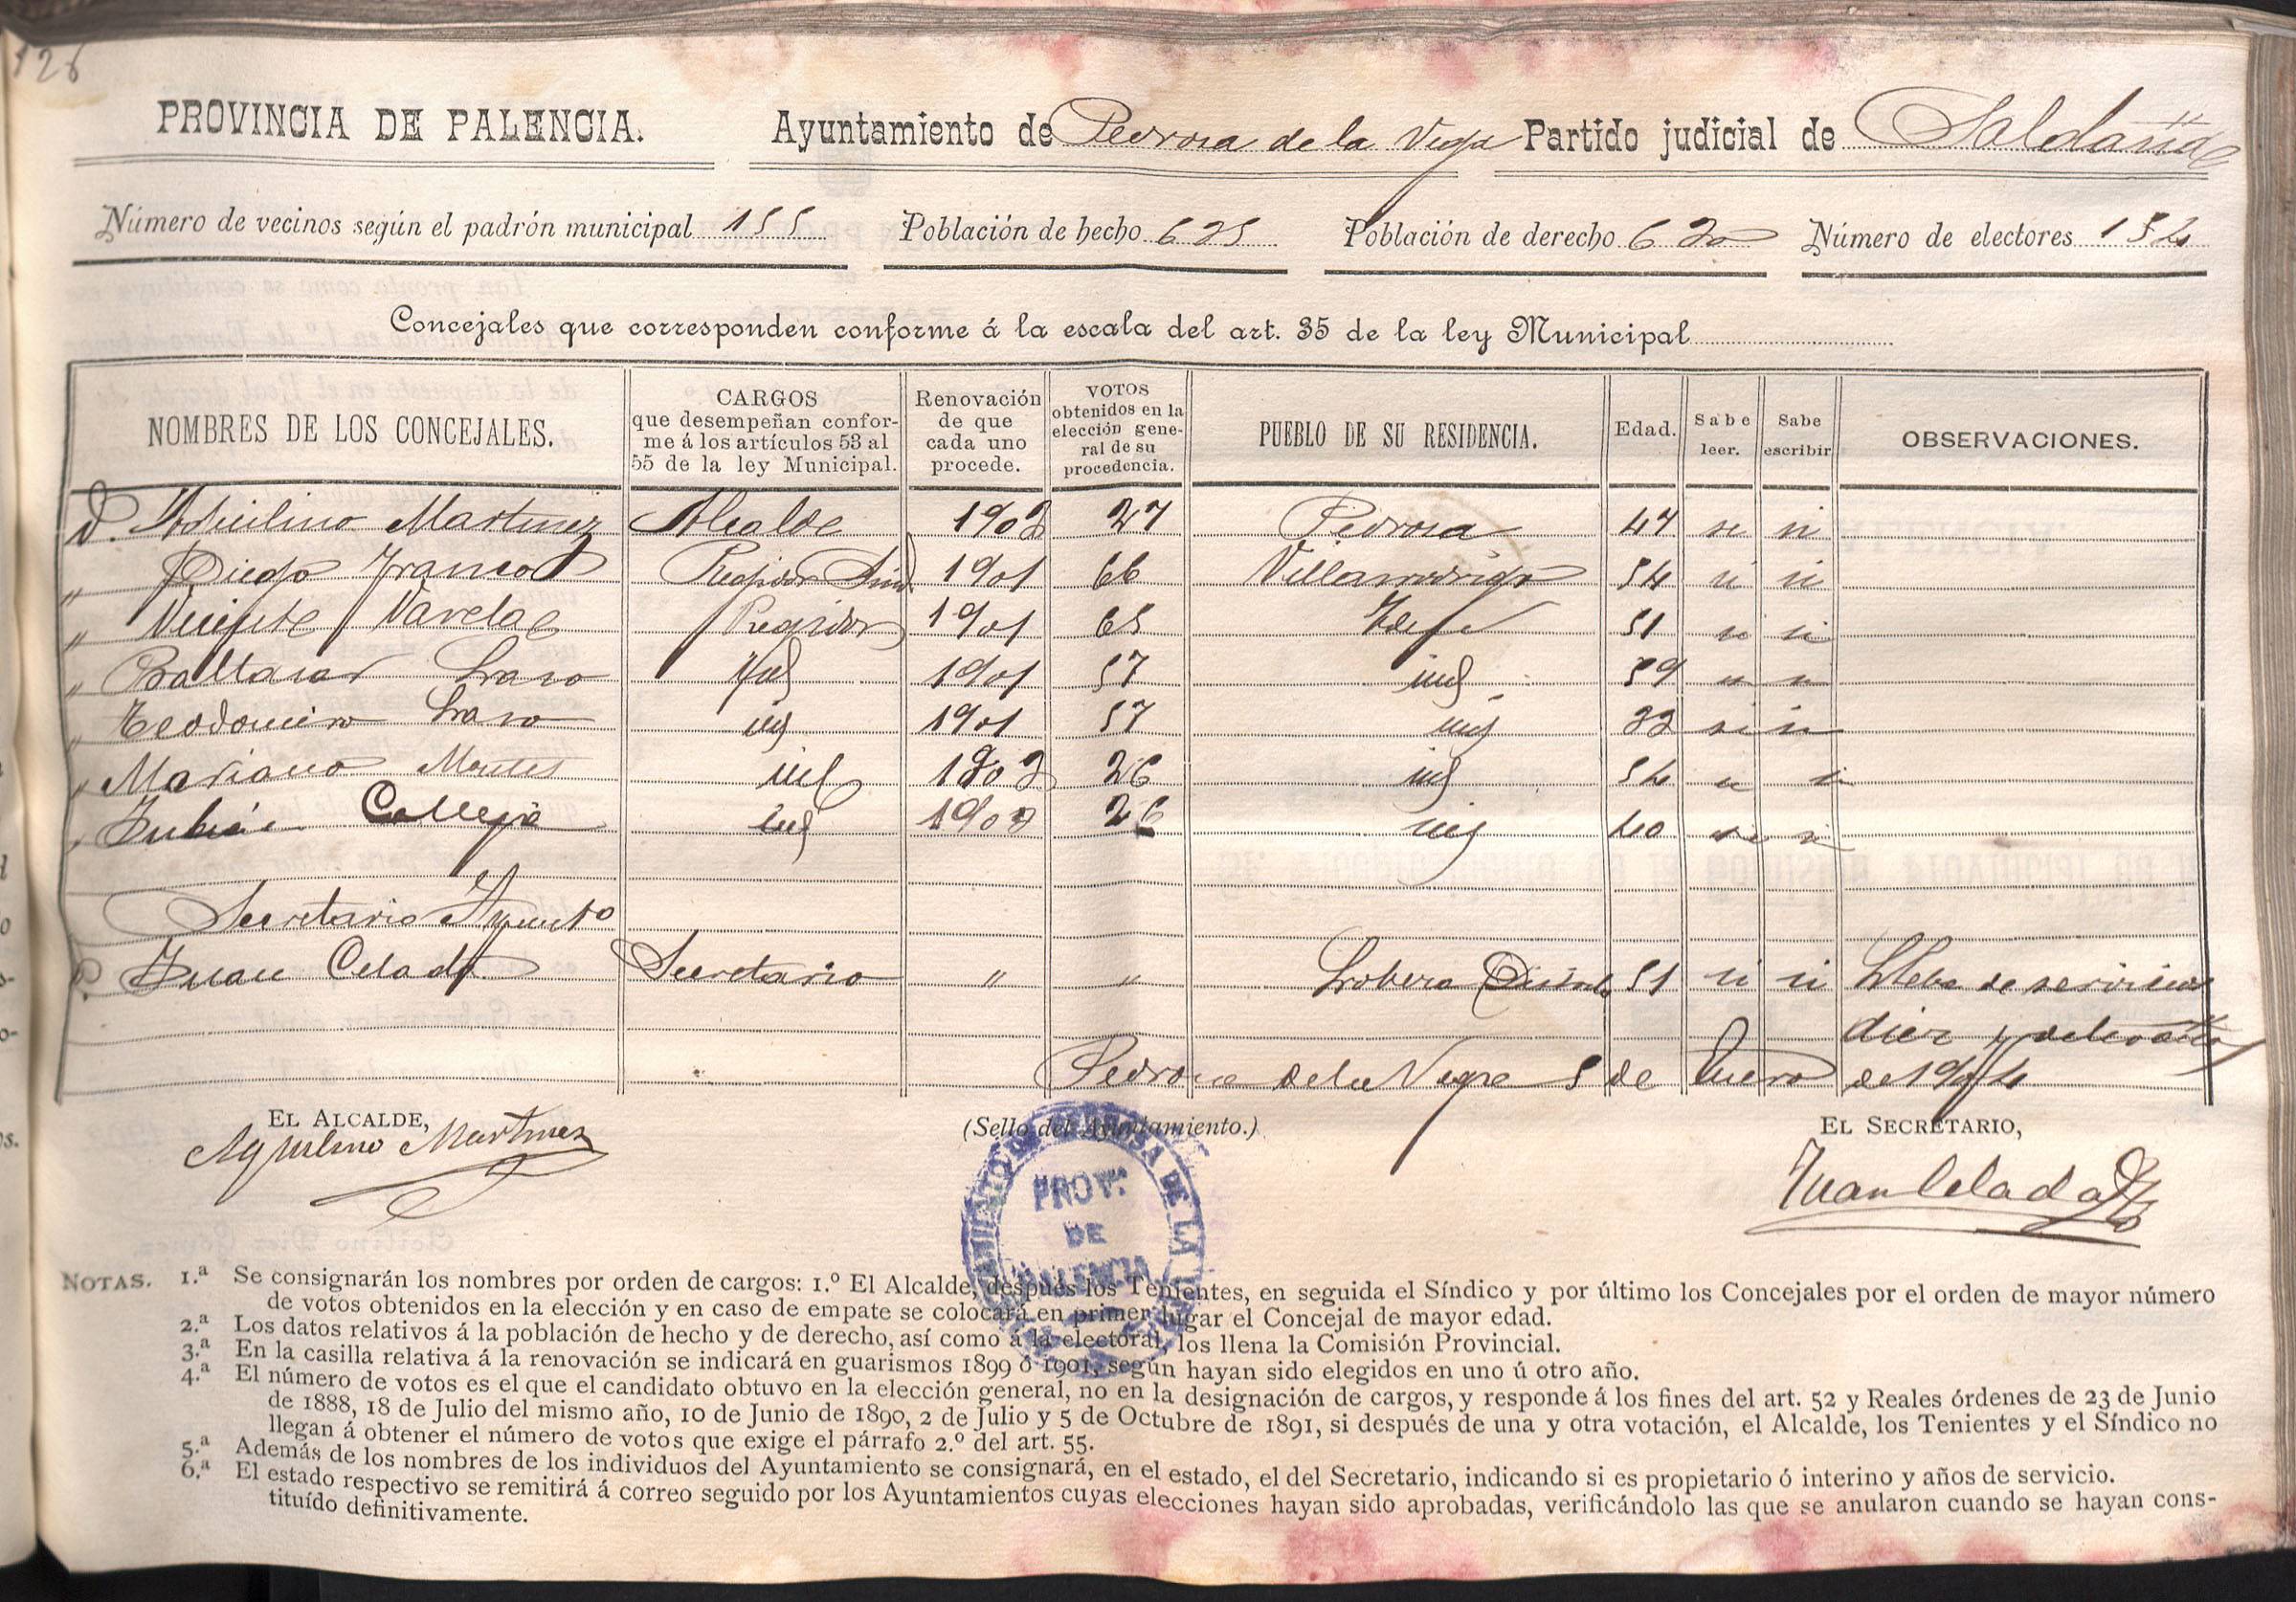 126
PROVINCIA DE PALENCIA. Ayuntamiento de Pedrosa de la Vega Partido judicial de Saldaña
Número de vecinos según el padrón municipal 155 Población de hecho 625 Población de derecho 620 Número de electores 154
Concejales que corresponden conforme á la escala del art. 35 de la ley Municipal
NOMBRES DE LOS CONCEJALES. CARGOS que desempeñan conforme á los artículos 53 al 55 de la ley Municipal. Renovación de que cada uno procede. VOTOS obtenidos en la elección general de su procedencia. PUEBLO DE SU RESIDENCIA. Edad. Sabe leer. Sabe escribir OBSERVACIONES.
D. Martinez Alcalde 1903 27 Pedrosa 47 si si
" Diego Franco Regidor Sind. 1901 66 Villarrodrigo 54 si si
" Vicente Varela Regidor 1901 65 51 si si
" Baltasar Laso 1901 57 59 si si
" Teodomiro Laso 1901 57 33 si si
" Mariano Montes 1903 26 54 si si
" Julián Calleja 1903 26 40 si si
Secretario Ayunto
D. Juan Celada Secretario " " Lobera 51 si si Lleba de servicios
diez y
Pedrosa de la Vega 5 de Enero de 1904
EL ALCALDE, (Sello del Ayuntamiento.) EL SECRETARIO,
Aquilino Martinez Juan Celada
PROV.ª
DE
PALENCIA
NOTAS. 1.ª Se consignarán los nombres por orden de cargos: 1.º El Alcalde, después los Tenientes, en seguida el Síndico y por último los Concejales por el orden de mayor número
de votos obtenidos en la elección y en caso de empate se colocará en primer lugar el Concejal de mayor edad.
2.ª Los datos relativos á la población de hecho y de derecho, así como á la electoral, los llena la Comisión Provincial.
3.ª En la casilla relativa á la renovación se indicará en guarismos 1899 ó 1901, según hayan sido elegidos en uno ú otro año.
4.ª El número de votos es el que el candidato obtuvo en la elección general, no en la designación de cargos, y responde á los fines del art. 52 y Reales órdenes de 23 de Junio
de 1888, 18 de Julio del mismo año, 10 de Junio de 1890, 2 de Julio y 5 de Octubre de 1891, si después de una y otra votación, el Alcalde, los Tenientes y el Síndico no
llegan á obtener el número de votos que exige el párrafo 2.º del art. 55.
5.ª Además de los nombres de los individuos del Ayuntamiento se consignará, en el estado, el del Secretario, indicando si es propietario ó interino y años de servicio.
6.ª El estado respectivo se remitirá á correo seguido por los Ayuntamientos cuyas elecciones hayan sido aprobadas, verificándolo las que se anularon cuando se hayan cons-
tituído definitivamente.